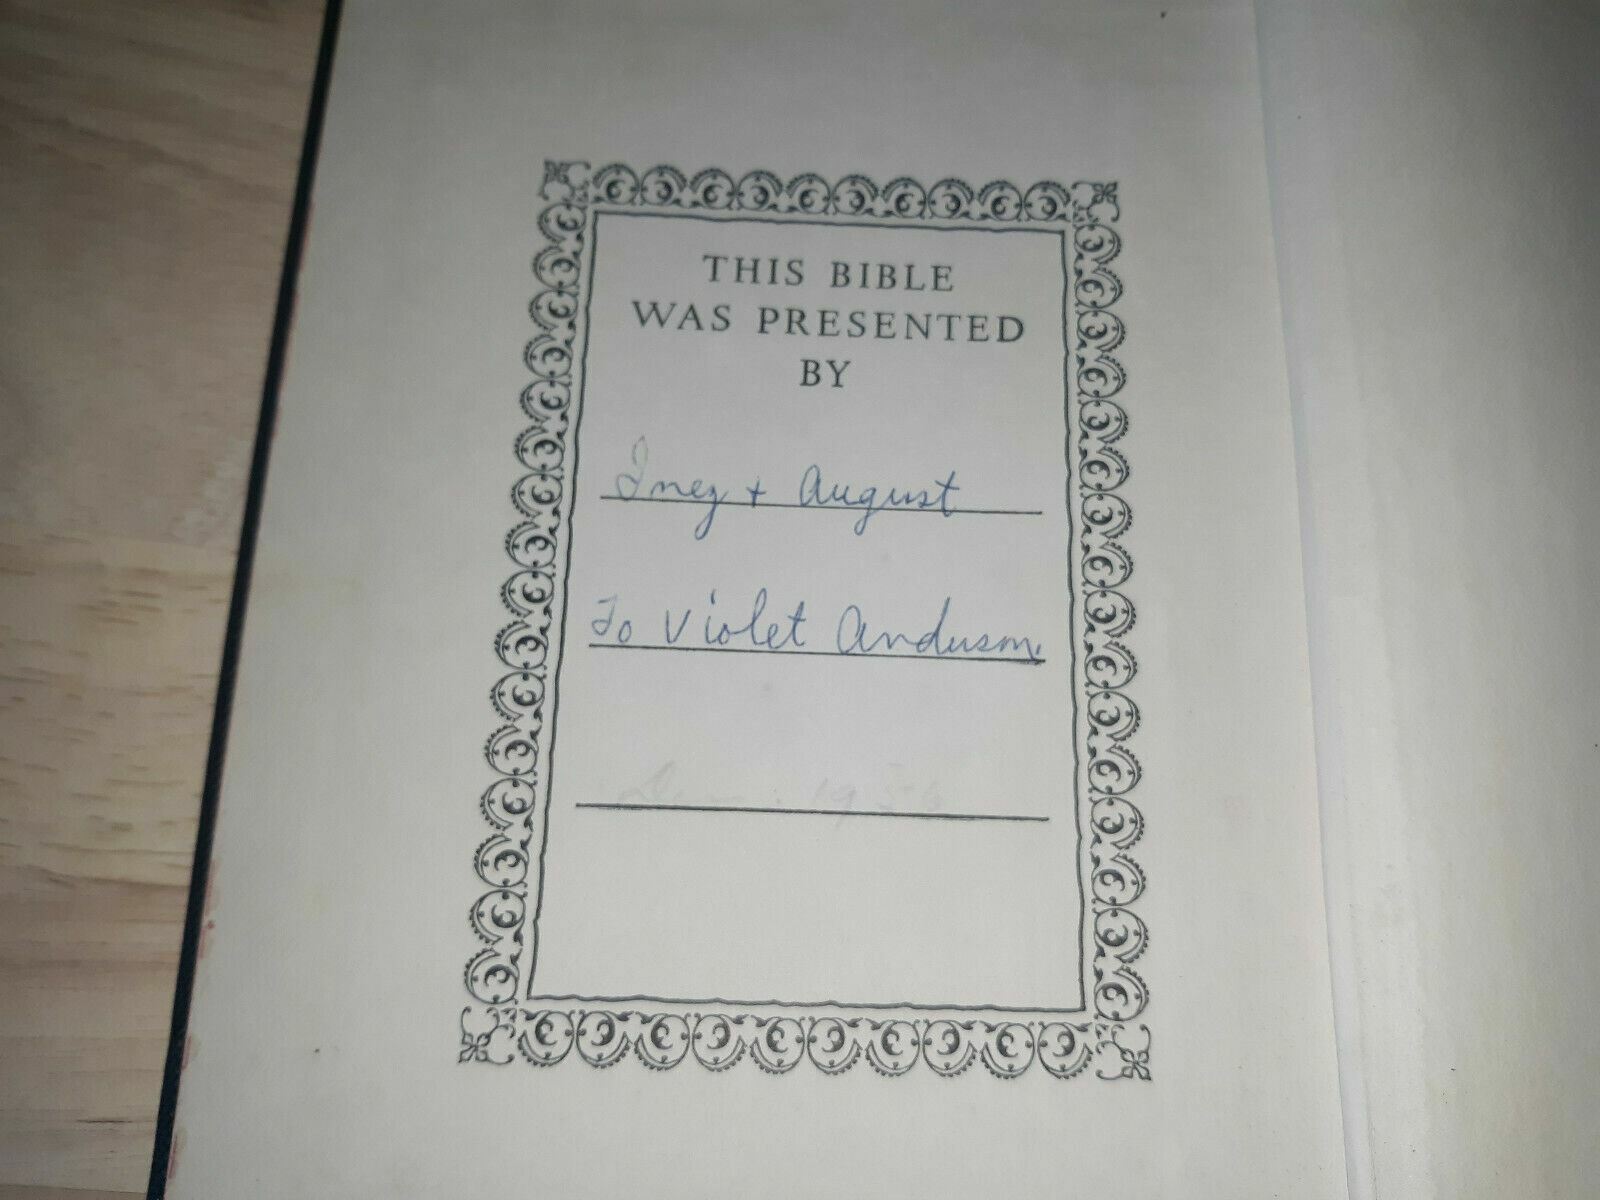 THIS BIBLE
WAS PRESENTED
BY
Inez + August
To Violet Anderson.
1956